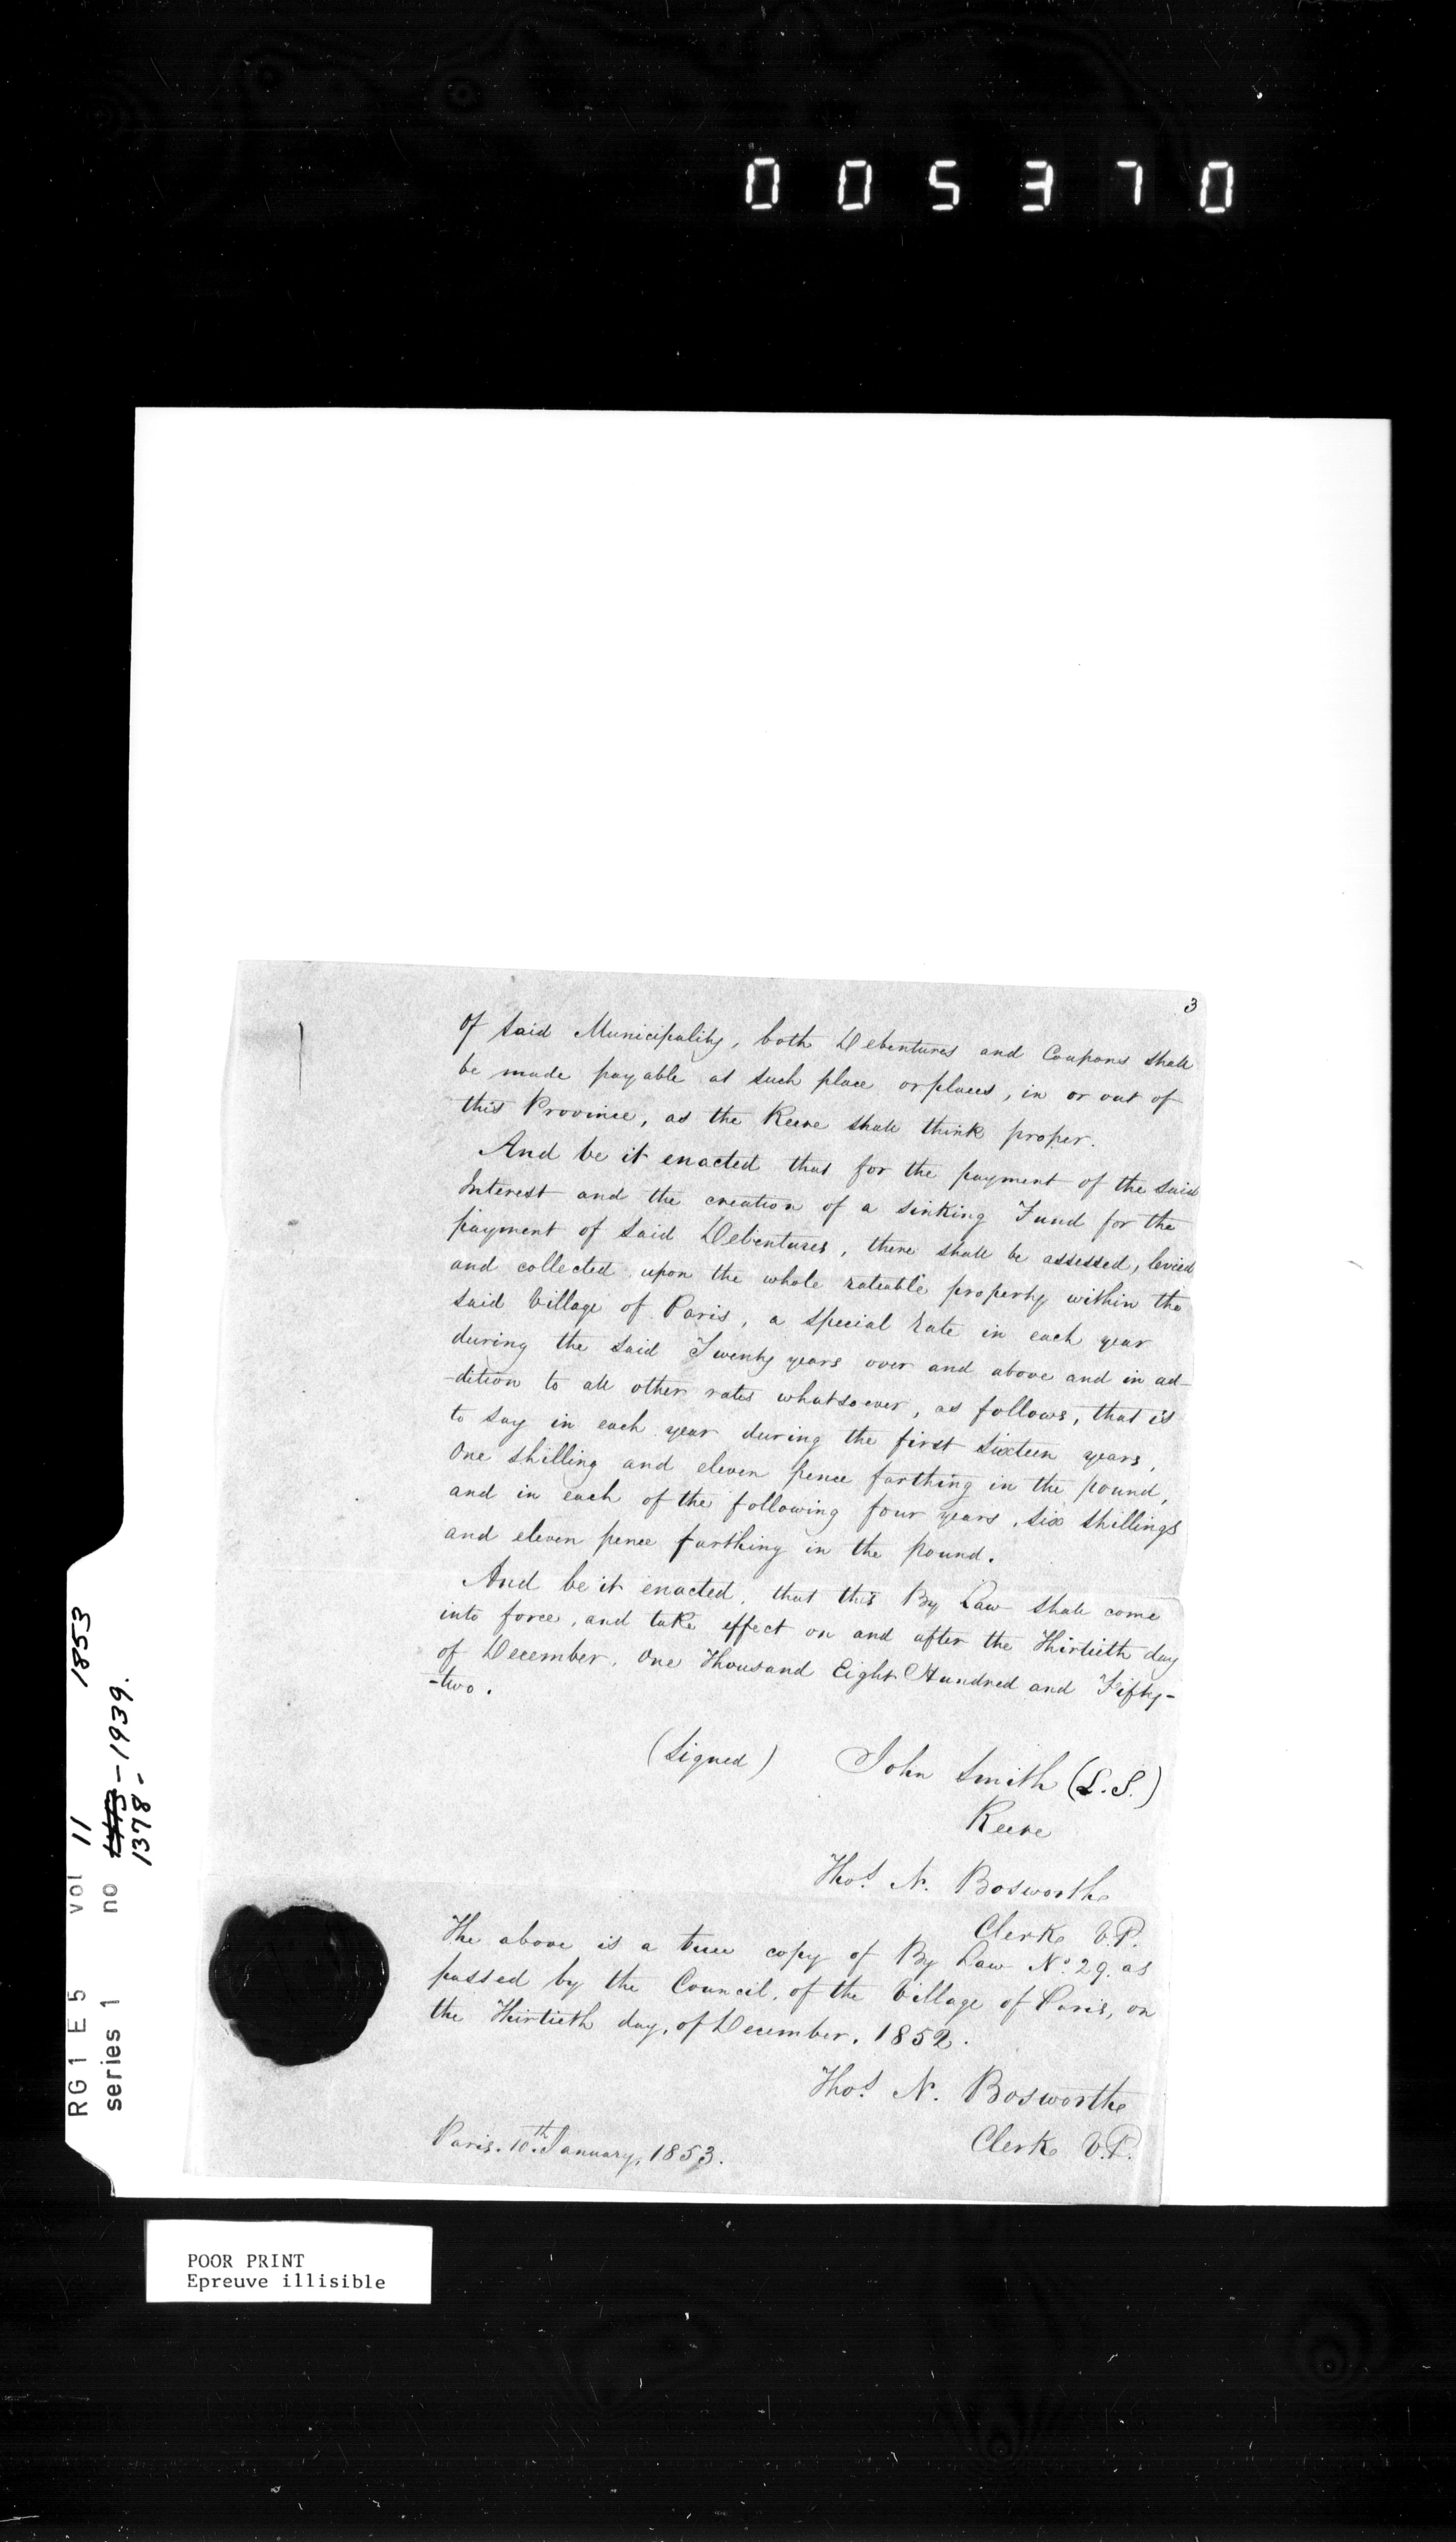 005370
3
of said Municipality, both Debentures and Coupons shall
be made payable at such place or places, in or out of
this Province, as the Reeve shall think proper.
And be it enacted that for the payment of the said
Interest and the creation of a sinking Fund for the
payment of said Debentures, there shall be assessed, levied
and collected upon the whole rateable property within the
said Village of Paris, a special rate in each year
during the said Twenty years over and above and in ad-
-dition to all other rates whatsoever, as follows, that is
to say in each year during the first sixteen years,
One shilling and eleven pence farthing in the pound,
and in each of the following four years, six shillings
and eleven pence farthing in the pound.
And be it enacted, that this By Law shall come
into force, and take effect on and after the Thirtieth day
of December, One Thousand Eight Hundred and Fifty-
-two.
(Signed) John Smith (L.S.)
Reeve
Thos. N. Bosworth
Clerk V.P.
The above is a true copy of By Law No. 29. as
passed by the Council, of the Village of Paris, on
the Thirtieth day, of December, 1852.
Thos. N. Bosworth
Clerk V.P.
Paris. 10th January, 1853.
RG 1 E 5 vol 11 1853
series 1 no 1939.
1378-
POOR PRINT
Epreuve illisible